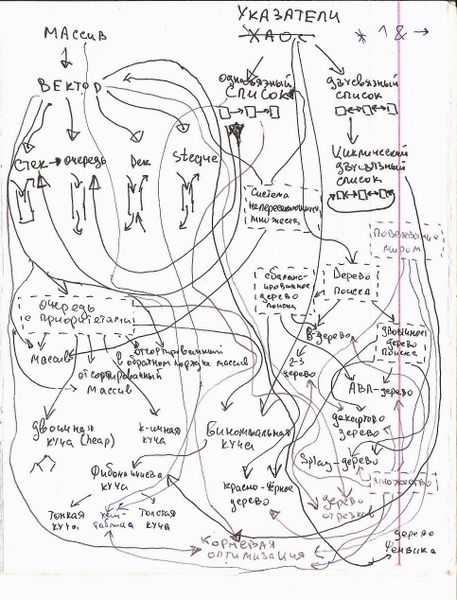 УКАЗАТЕЛИ
МАССИВ
ХАОС
* ^ & →
ВЕКТОР
односвязный
список
двусвязный
список
Стек
очередь
Дек
Steque
Циклический
двусвязный
список
Система
непересекающихся
множеств
Повелевание
миром
сбаланс-
ированное
дерево
поиска
Дерево
поиска
Очередь
с приоритетами
B-дерево
двоичное
дерево
поиска
массив
отсортированный
массив
отсортированный
в обратном порядке массив
2-3
дерево
АВЛ-дерево
двоичная
куча (heap)
к-ичная
куча
биномиальная
куча
декартово
дерево
Splay-дерево
Фибоначчиева
куча
красно-чёрное
дерево
множество
дерево
отрезков
тонкая
куча
хеш-
таблица
Толстая
куча
КОРНЕВАЯ
ОПТИМИЗАЦИЯ
дерево
Фенвика